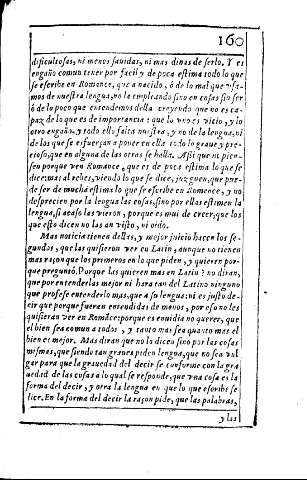 160
dificultosas, ni menos sauidas, ni mas dinas de serlo. Y es
engaño comun tener por facil y de poca estima todo lo que
se escribe en Romance, que a nacido, ó de lo mal que usa-
mos de nuestra lengua, no la empleando sino en cosas sin ser
ó de lo poco que entendemos della creyendo que no es ca-
paz de lo que es de importancia: que lo uno es vicio, y lo
otro engaño, y todo ello falta nuestra, y no de la lengua, ni
de los que se esfuerçan a poner en ella todo lo graue y pre-
cioso, que en alguna de las otras se halla. Assi que ni pien-
sen porque ven Romance, que es de poca estima lo que se
dice: mas al rebes, viendo lo que se dice, juzguen, que pue-
de ser de mucha estima lo que se escribe en Romance, y no
desprecien por la lengua las cosas, sino por ellas estimen la
lengua, si acaso las vieron, porque es mui de creer, que los
que esto dicen no las an visto, ni oido.
Mas noticia tienen dellas, y mejor juicio hacen los se-
gundos, que las quisieron ver en Latin, aunque no tienen
mas raçon que los primeros en lo que piden, y quieren por-
que pregunto, Porque las quieren mas en Latin? no diran,
que por entenderlas mejor ni hara tan del Latino ninguno
que profese entenderlo mas, que a su lengua: ni es justo de-
cir que porque fueran entendidas de menos, por eso no les
quisieran ver en Romãce: porque es enuidia no querer, que
el bien sea comun a todos, y tanto mas fea quanto mas el
bien es mejor. Mas diran que no lo dicen sino por las cosas
mismas, que siendo tan graues piden lengua, que no sea vul
gar para que la grauedad del decir se conforme con la gra
uedad de las cosas a lo qual se responde, que una cosa es la
forma del decir, y otra la lengua en que lo que escribe se
dice, En la forma del decir la raçon pide, que las palabras,
y las